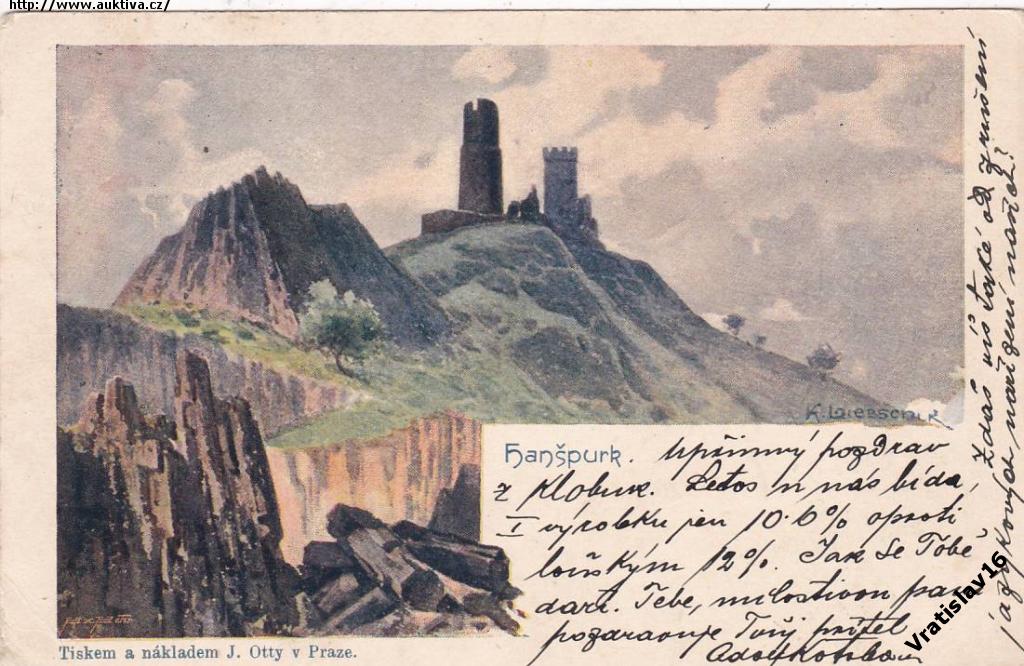 http://www.auktiva.cz/
K. Liebscher
Hanšpurk.
Upřímný pozdrav
z Klobuk. Letos u nás bída,
I výrobku jen 10·6% oproti
loňským 12%. Jak se Tobě
daří. Tebe, milostivou paní
pozdravuje Tvůj přítel
Adolf
Zdaž víš také od zrušení
jazykových nařízení
Tiskem a nákladem J. Otty v Praze.
Vratislav16